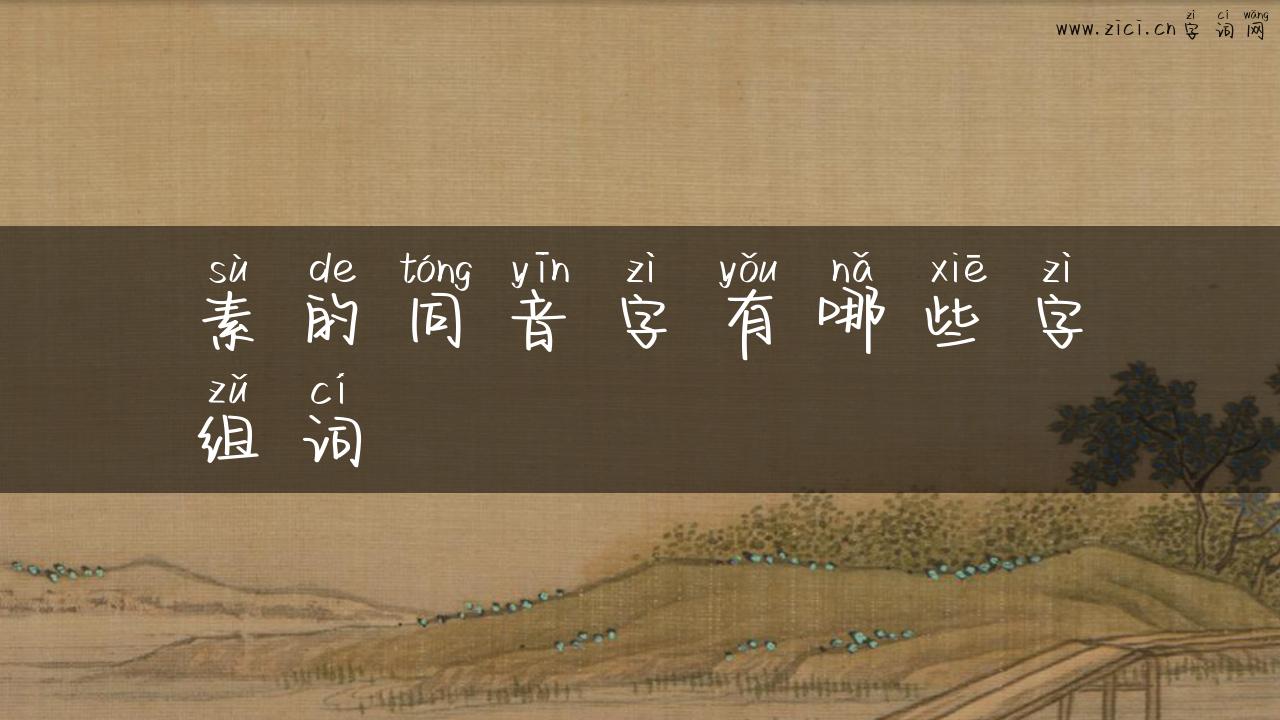 zì cí wǎng
www.zici.cn 字词网
sù de tóng yīn zì yǒu nǎ xiē zì
素的同音字有哪些字
zǔ cí
组词